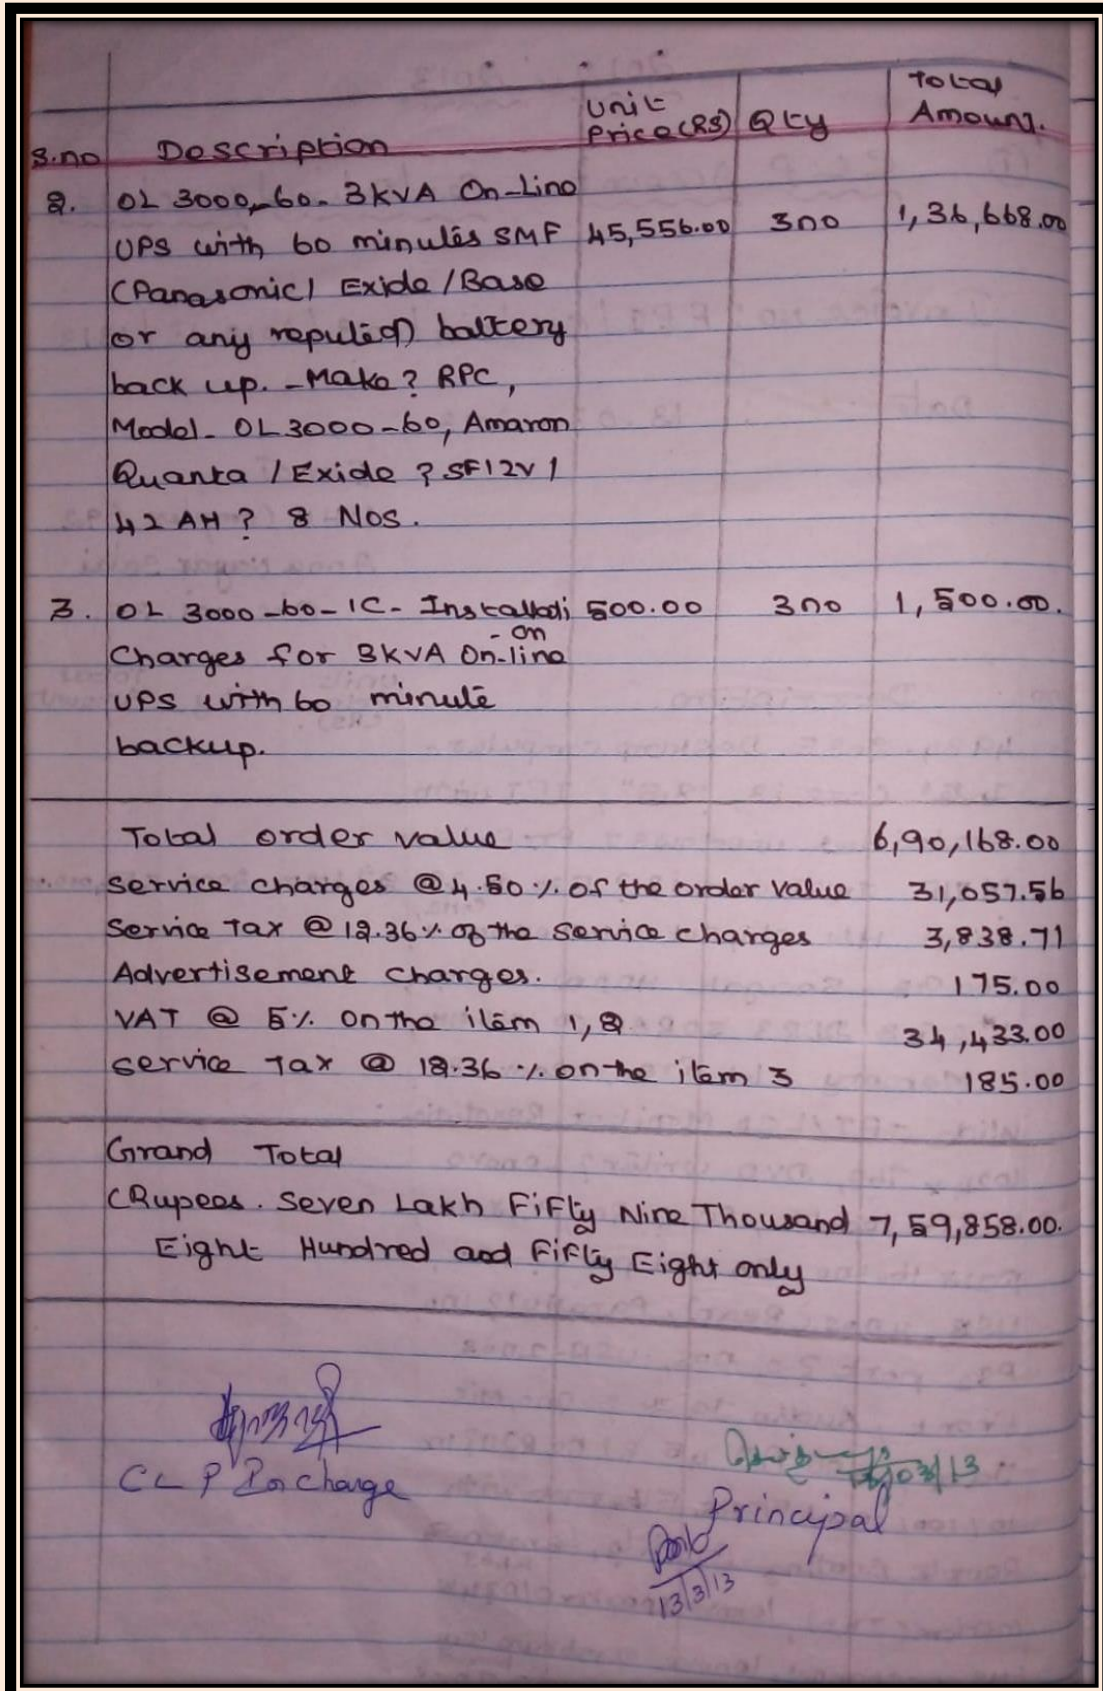 S.no Description Unit Price (RS) Qty Total Amount.
2. OL 3000-60- 3KVA On-Line
UPS with 60 minutes SMF 45,556.00 3no 1,36,668.00
(Panasonic/ Exide / Base
or any reputed) battery
back up. - Make? RPC,
Model- OL3000-60, Amaron
Quanta / Exide ? SF12V/
42 AH? 8 Nos.
3. OL 3000-60-IC- Installati 500.00 3no 1,500.00.
-on
Charges for 3KVA On-line
UPS with 60 minute
backup.
Total order value 6,90,168.00
Service charges @ 4.50 % of the order value 31,057.56
Service Tax @ 12.36% of the service charges 3,838.71
Advertisement charges. 175.00
VAT @ 5% on the item 1,2 34,433.00
Service Tax @ 12.36 % on the item 3 185.00
Grand Total
(Rupees. Seven Lakh Fifty Nine Thousand 7,59,858.00.
Eight Hundred and Fifty Eight only
CLP In charge
13/03/13
Principal
13/3/13